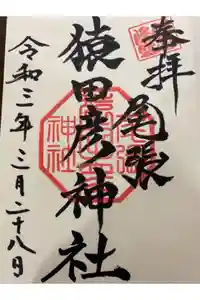 奉拝
尾張
猿田彦神社
令和三年三月二十八日